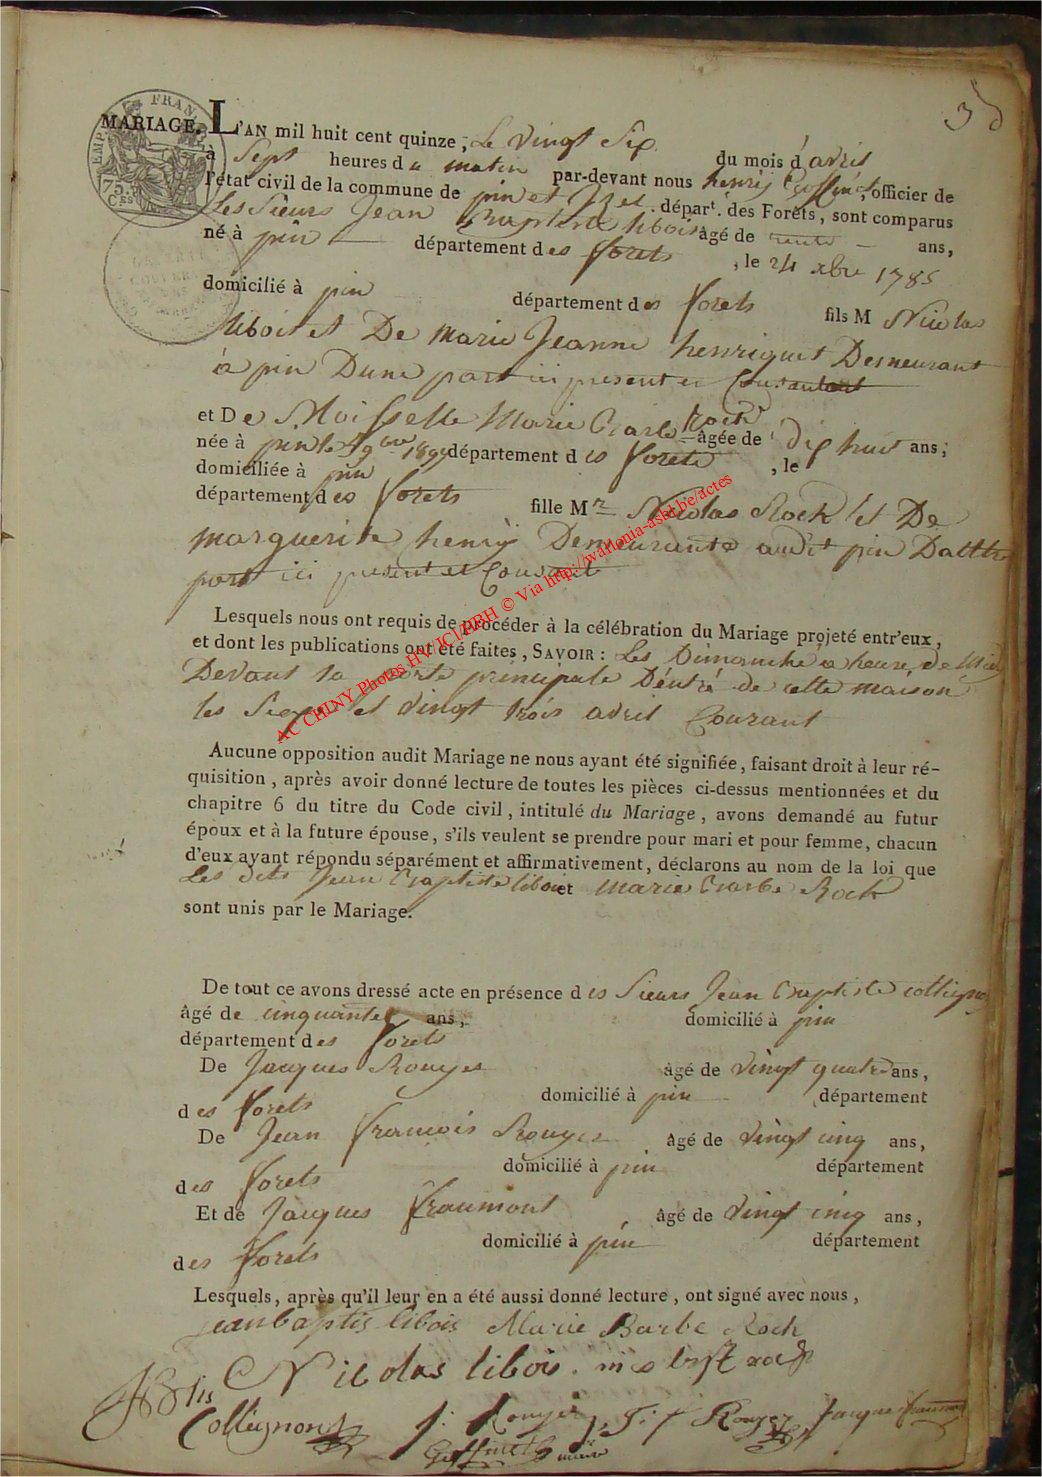 MARIAGE. L'AN mil huit cent quinze, Le vingt Six du mois d'avril
à Sept heures du matin par-devant nous henrij Goffinet, officier de
l'état civil de la commune de pin et Izel, départ. des Forêts, sont comparus
Les Sieurs Jean Baptiste libois âgé de trente ans,
né à pin département des forets, le 24 xbre 1785
domicilié à pin département des forets fils M Nicolas
libois et De Marie Jeanne henriquet Demeurant
à pin Dune part ici present et Consentant
et De Moisselle Marie Barbe Rock âgée de dix huit ans;
née à pin le 9bre département des forets, le
domiciliée à pin
département des forets fille Mr Nicolas Rock et De
marguerite henrÿ Demeurants audit pin Dauttre
part ici present et Consent
Lesquels nous ont requis de procéder à la célébration du Mariage projeté entr'eux,
et dont les publications ont été faites, SAVOIR: Les Dimanche à heure de Midi
Devant la porte principale D'entré de cette maison
les Seize et vingt trois avril Courant
Aucune opposition audit Mariage ne nous ayant été signifiée, faisant droit à leur ré-
quisition, après avoir donné lecture de toutes les pièces ci-dessus mentionnées et du
chapitre 6 du titre du Code civil, intitulé du Mariage, avons demandé au futur
époux et à la future épouse, s'ils veulent se prendre pour mari et pour femme, chacun
d'eux ayant répondu séparément et affirmativement, déclarons au nom de la loi que
Les dits Jean Baptiste libois et Marie Barbe Rock
sont unis par le Mariage.
De tout ce avons dressé acte en présence des Sieurs Jean Baptiste collignon
âgé de cinquante ans, domicilié à pin
département des forets
De Jacques Rouyer âgé de vingt quatre ans,
domicilié à pin département
des forets
De Jean francois Rouyer âgé de vingt cinq ans,
domicilié à pin département
des forets
Et de Jacques fraumont âgé de vingt cinq ans,
domicilié à pin département
des forets
Lesquels, après qu'il leur en a été aussi donné lecture, ont signé avec nous,
jean baptis libois Marie Barbe Rock
Nicolas libois
Collignon J: Rouyer J: f Rouyer Jacque fraumont
Goffinet maire
AC CHINY Photos HWICI/PBH © Via http://wallonia-asbl.be/actes